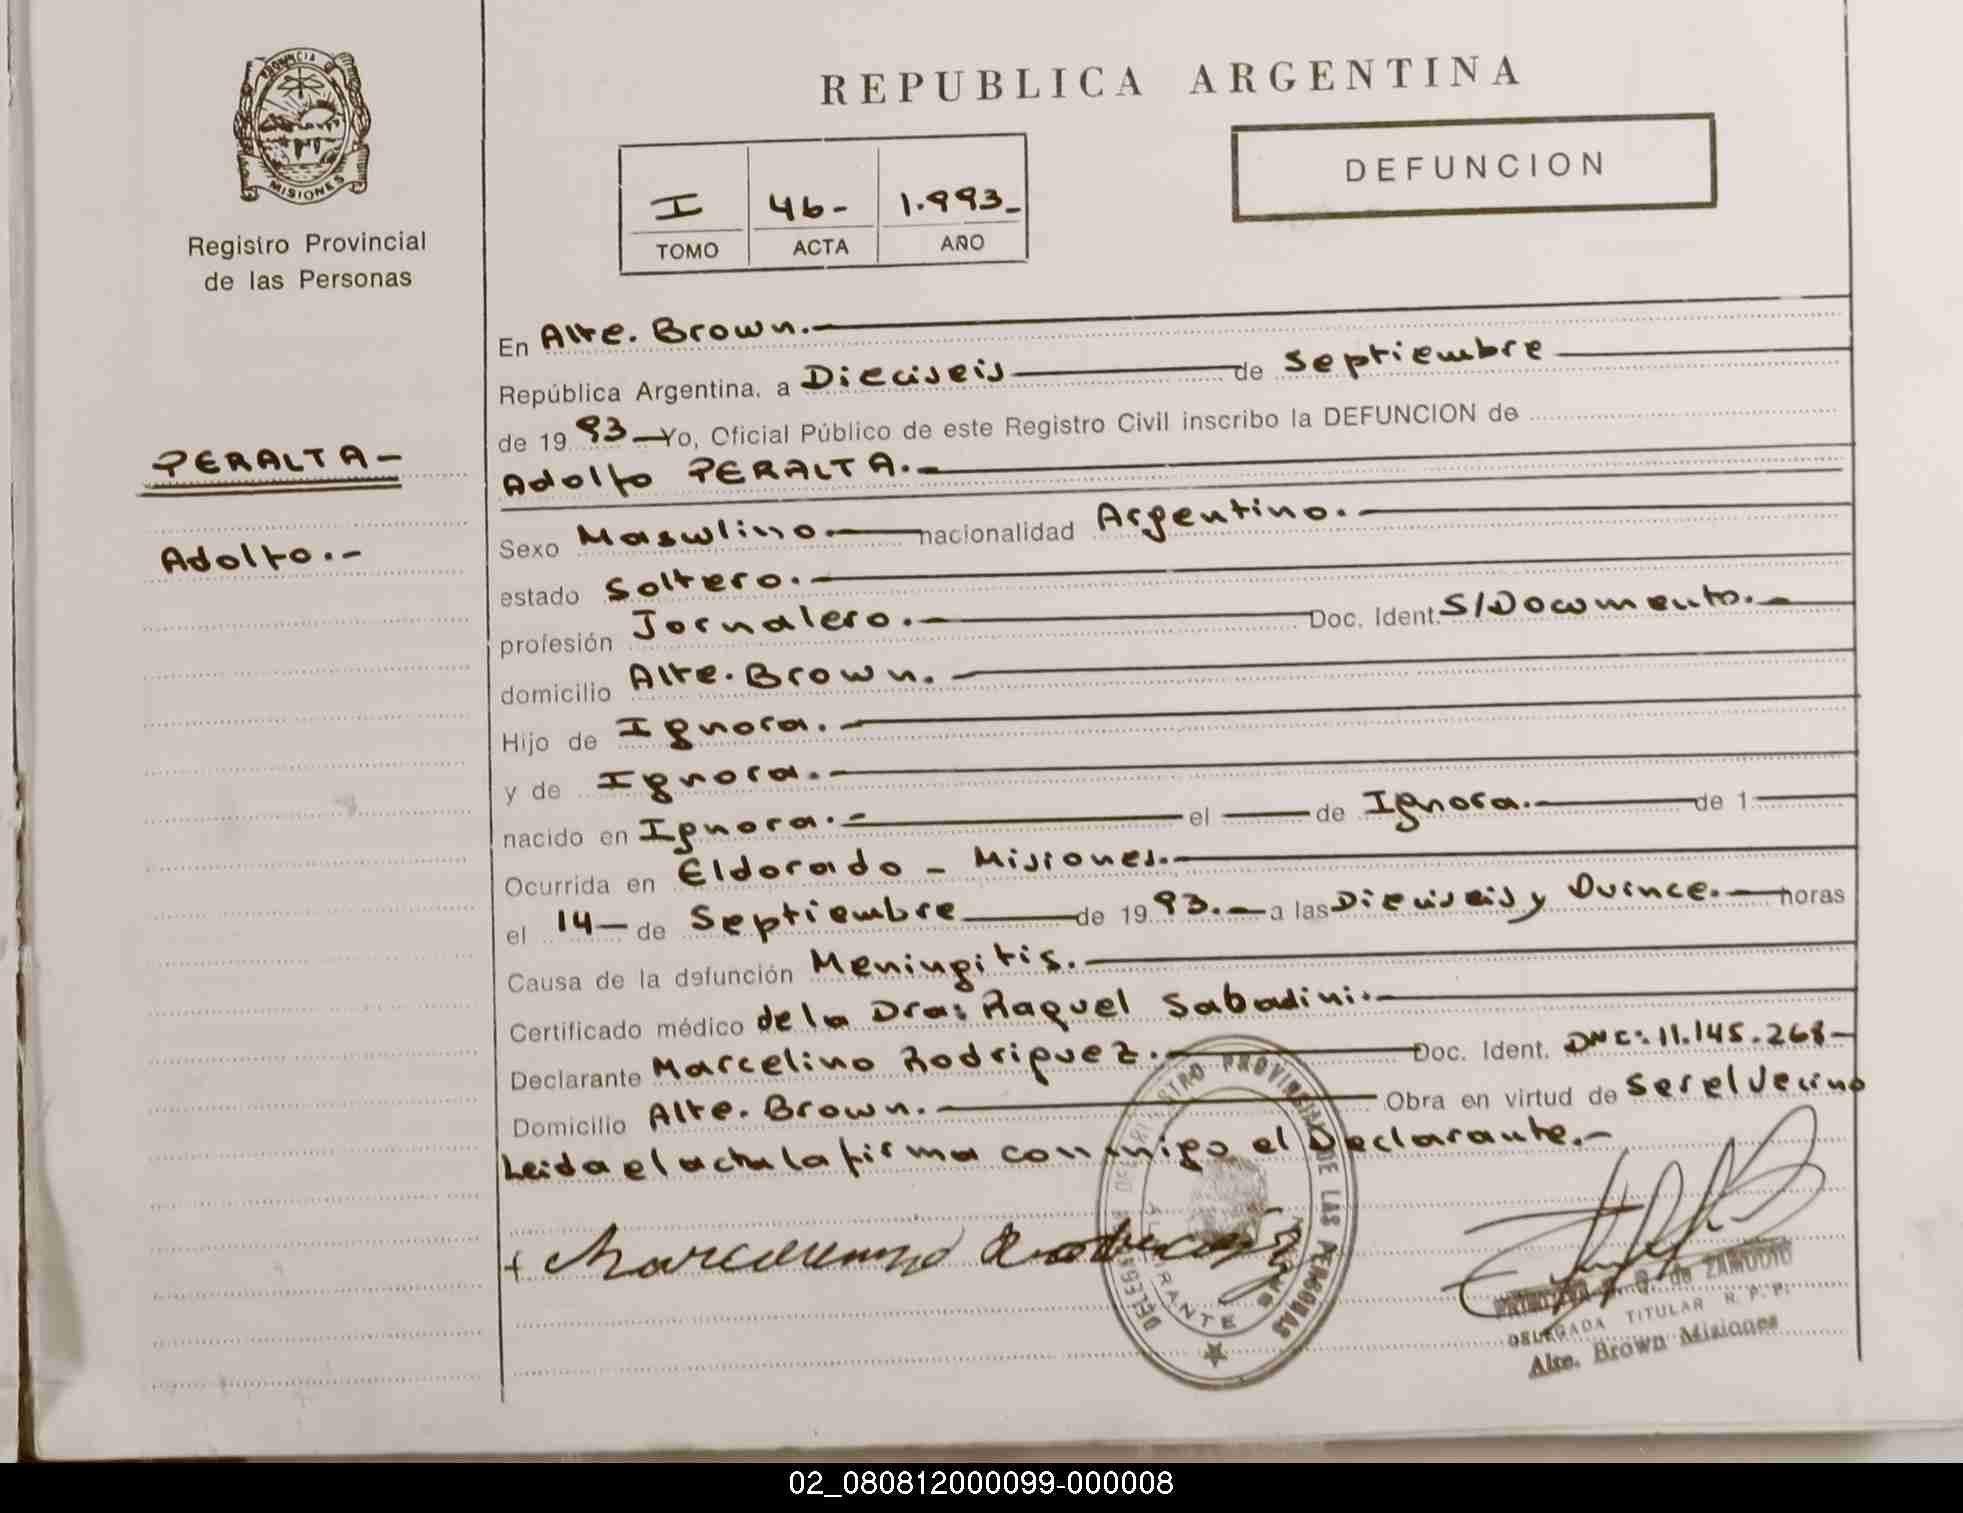 PROVINCIA D
MISIONES
Registro Provincial
de las Personas
REPUBLICA ARGENTINA
DEFUNCION
I 46- 1.993_
TOMO ACTA AÑO
PERALTA-
Adolfo.-
En Alte. Brown.-
República Argentina, a Dieciseis de Septiembre
de 1993 Yo, Oficial Público de este Registro Civil inscribo la DEFUNCION de
Adolfo PERALTA.-
Sexo Masculino. nacionalidad Argentino.-
estado Soltero.-
profesión Jornalero.- Doc. Ident. S/Documento.-
domicilio Alte. Brown.
Hijo de Ignora.-
y de Ignora.-
nacido en Ignora.- el de Ignora. de 1
Ocurrida en Eldorado - Misiones.-
el 14- de Septiembre de 1993.- a las Dieciseis y Quince.- horas
Causa de la defunción Meningitis.-
Certificado médico de la Dra: Raquel Sabadini.-
Declarante Marcelino Rodriguez.- Doc. Ident. DNC: 11.145.268-
Domicilio Alte. Brown.- Obra en virtud de ser el Vecino
Leida el acta la firma conmigo el Declarante.-
DELEGA REGISTRO PROVINCIAL DE LAS PERSONAS
ALMIRANTE
de ZAMUDIO
DELEGADA TITULAR R. P. P.
Alte. Brown Misiones
02_080812000099-000008